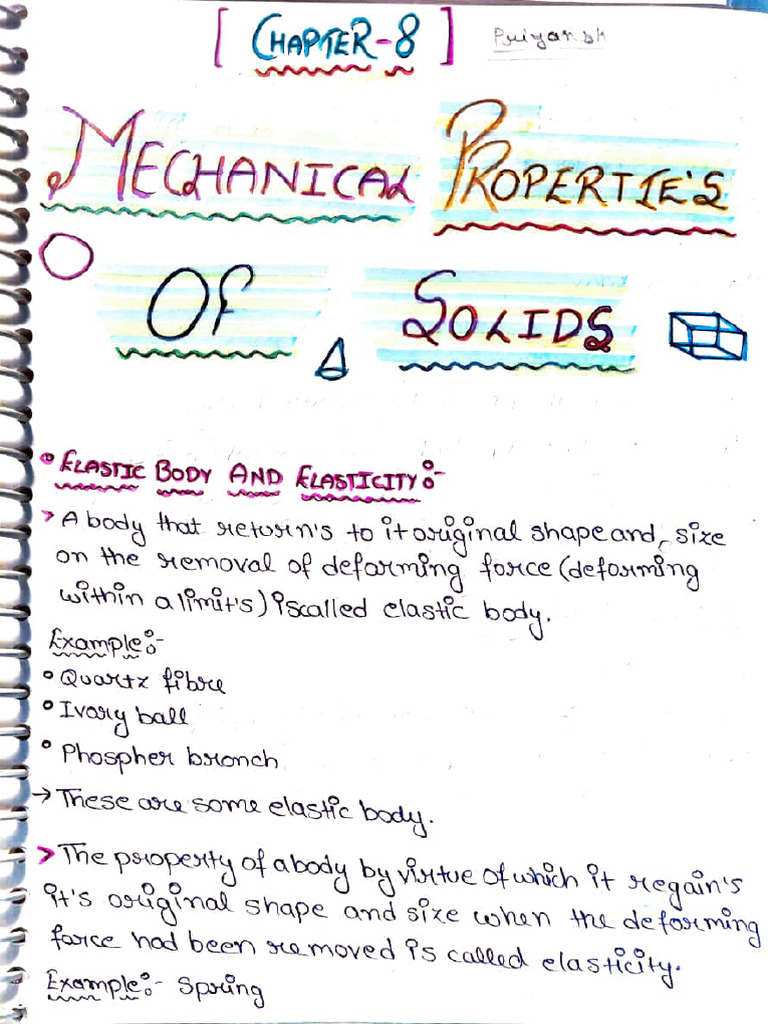 [ CHAPTER-8 ] Priyansh
MECHANICAL PROPERTIE'S
OF SOLIDS
• ELASTIC BODY AND ELASTICITY:-
> A body that return's to it original shape and, size
on the removal of deforming force (deforming
within a limit's) is called elastic body.
Example:-
• Quartz fibre
• Ivory ball
• Phospher bronch
→ These are some elastic body.
> The property of a body by virtue of which it regain's
it's original shape and size when the deforming
force had been removed is called elasticity.
Example:- Spring